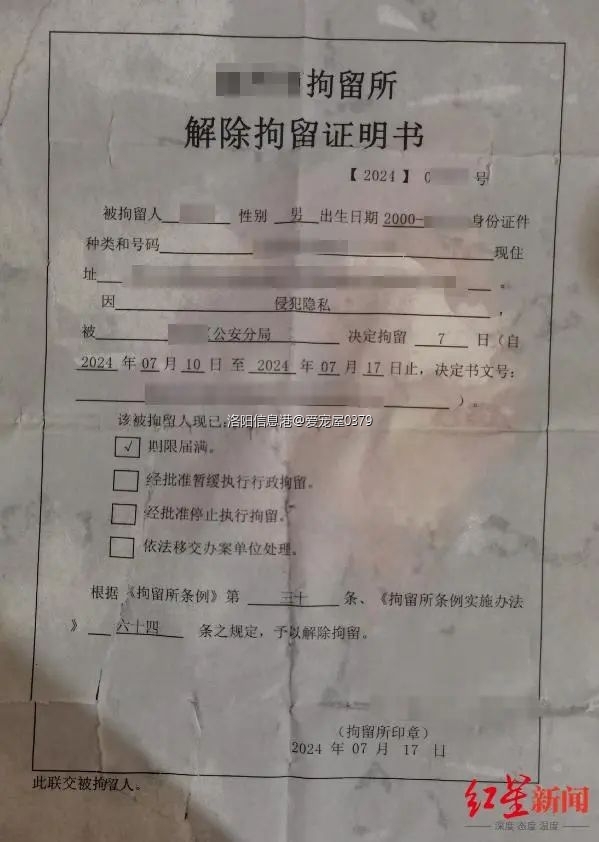 拘留所
解除拘留证明书
【2024】0 号
被拘留人 性别 男 出生日期 2000- 身份证件
种类和号码 现住
址 。
因 侵犯隐私 ,
被 公安分局 决定拘留 7 日(自
2024 年 07 月 10 日 至 2024 年 07 月 17 日止,决定书文号:
)。
该被拘留人现已:
洛阳信息港@爱宠屋0379
√ 期限届满。
经批准暂缓执行行政拘留。
经批准停止执行拘留。
依法移交办案单位处理。
根据《拘留所条例》第 三十 条、《拘留所条例实施办法
》 六十四 条之规定,予以解除拘留。
(拘留所印章)
2024 年 07 月 17 日
此联交被拘留人。
红星新闻
深度 态度 温度